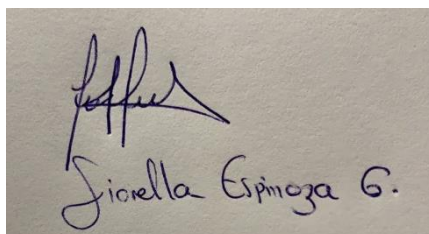 Fiorella Espinoza G.